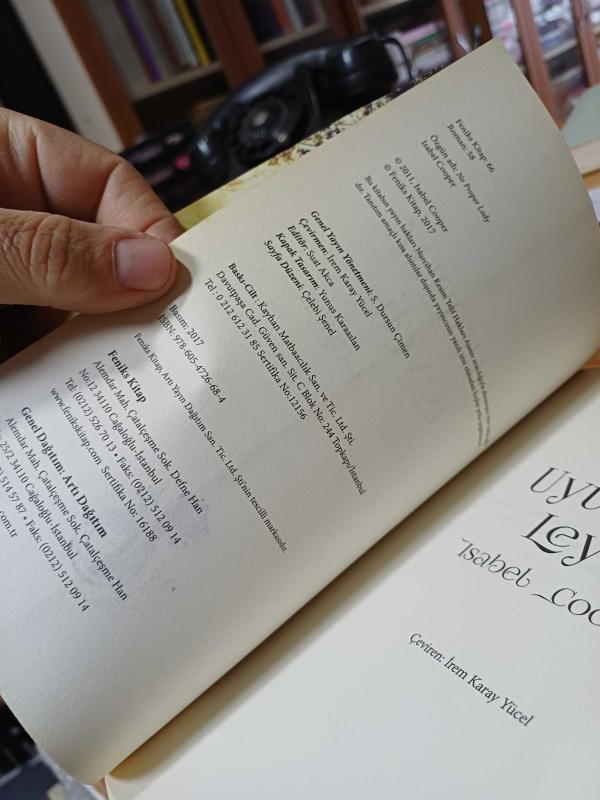 Feniks Kitap 66
Roman: 58
Özgün adı: No Proper Lady
Isabel Cooper
© 2011, Isabel Cooper
© Feniks Kitap, 2017
Bu kitabın yayın hakları Nurcihan Kesim Telif Hakları Ajansı aracılığıyla alınmıştır.
dır. Tanıtım amaçlı kısa alıntılar dışında yayıncının yazılı izni olmadan hiçbir yolla
Genel Yayın Yönetmeni: S. Dursun Çimen
Çevirmen: İrem Karay Yücel
Editör: Suat Akca
Kapak Tasarım: Yunus Karaaslan
Sayfa Düzeni: Çelebi Şenel
Baskı-Cilt: Kayhan Matbaacılık San. ve Tic. Ltd. Şti.
Davutpaşa Cad. Güven san. Sit. C Blok No: 244 Topkapı/İstanbul
Tel : 0 212 612 31 85 Sertifika No:12156
Basım: 2017
ISBN: 978-605-4726-68-4
Feniks Kitap, Artı Yayın Dağıtım San. Tic. Ltd. Şti'nin tescilli markasıdır.
Feniks Kitap
Alemdar Mah. Çatalçeşme Sok. Defne Han
No:12 34110 Cağaloğlu-İstanbul
Tel: (0212) 526 70 13 • Faks: (0212) 512 09 14
www.fenikskitap.com Sertifika No: 16188
Genel Dağıtım: Artı Dağıtım
Alemdar Mah. Çatalçeşme Sok. Çatalçeşme Han
25/2 34110 Cağaloğlu-İstanbul
) 514 57 87 • Faks: (0212) 512 09 14
com.tr
UYU
Ley
Isabel Coo
Çeviren: İrem Karay Yücel